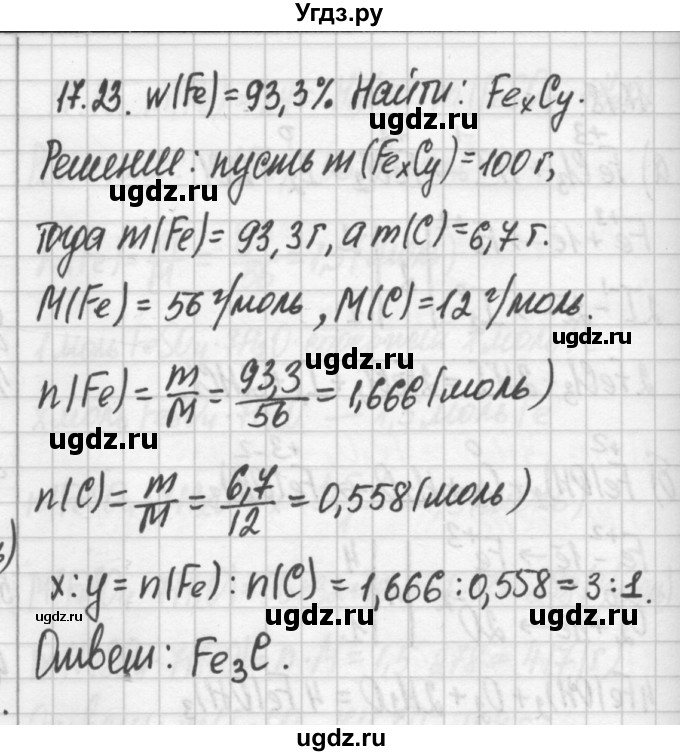 Угдз.ру
17.23. w(Fe) = 93,3% Найти: FexCy.
Решение: пусть m(FexCy) = 100г,
ugdz.ru ugdz.ru
тогда m(Fe) = 93,3г, а m(C) = 6,7 г.
M(Fe) = 56 г/моль, M(C) = 12 г/моль.
ugdz.ru
n(Fe) = m/M = 93,3/56 = 1,666 (моль)
ugdz.ru
n(C) = m/M = 6,7/12 = 0,558 (моль)
x : y = n(Fe) : n(C) = 1,666 : 0,558 = 3 : 1.
ugdz.ru ugdz.ru ugdz.ru
Ответ: Fe3C.
ugdz.ru